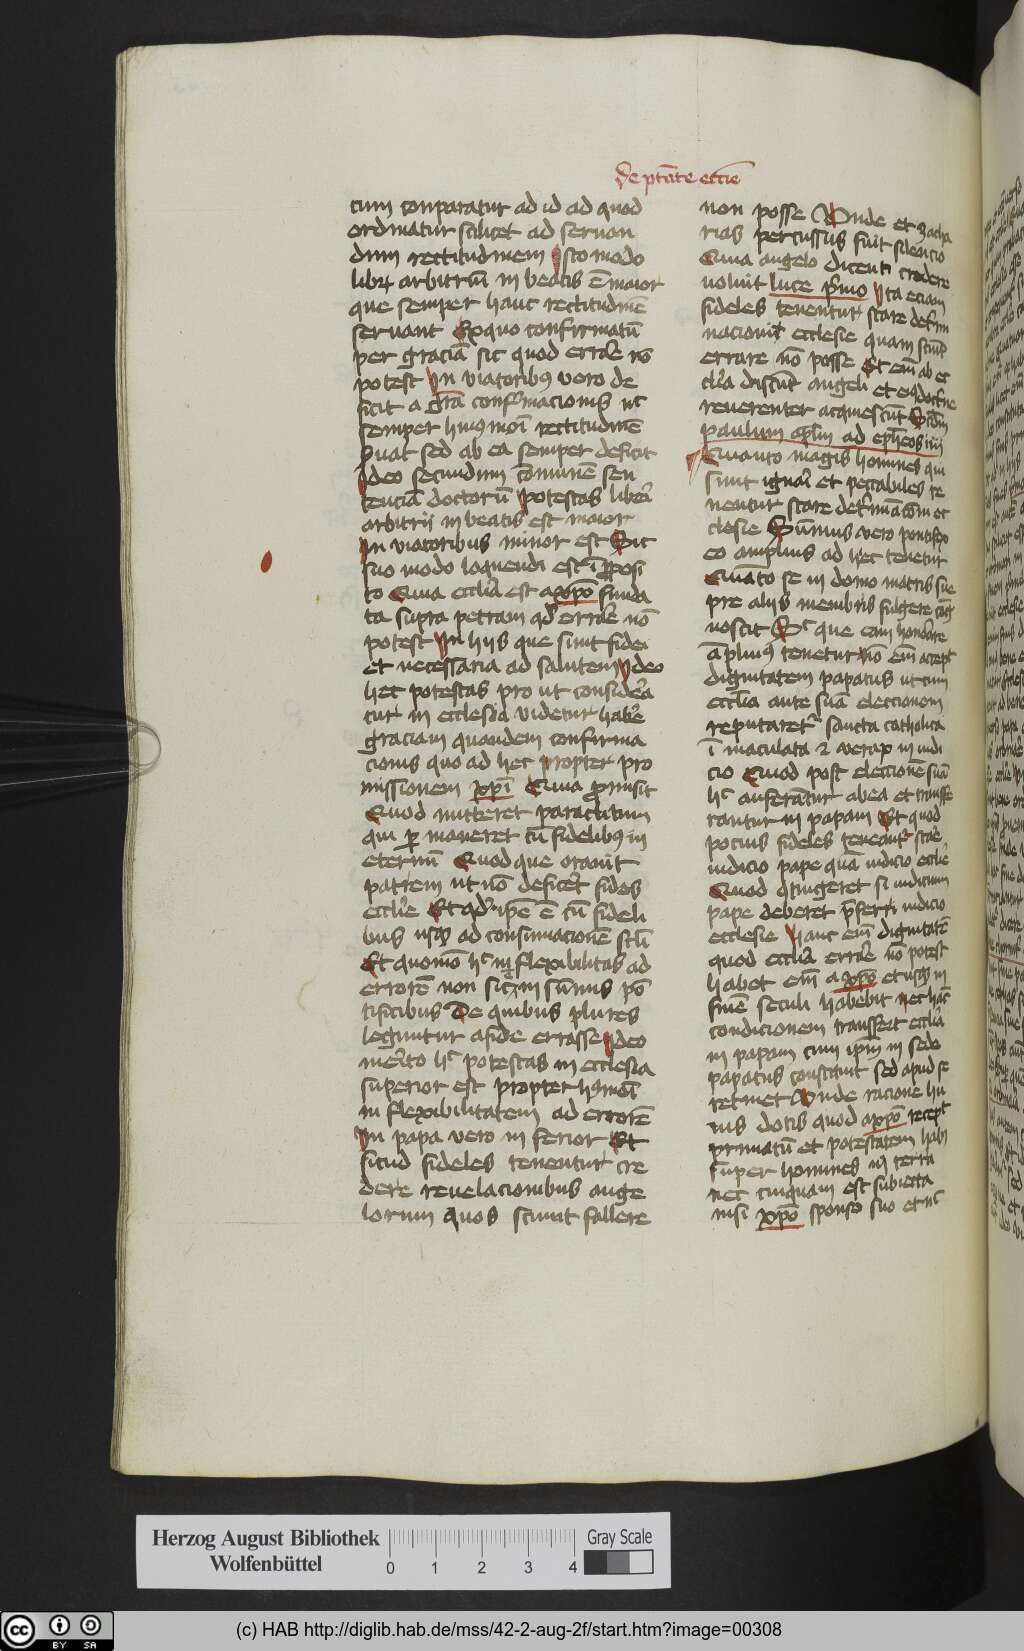 De ptāte eccīe
cum conparatur ad id ad quod
ordinatur scilicet ad seruan
dum rectitudinem Isto modo
liberum arbitriū in beatis ē maior
que semper hanc rectitudinē
seruant Ex quo confirmatū
per graciā sic quod errare nō
potest In viatoribus vero de
ficit a grā confirmacionis nec
semper huiusmōi rectitudinē
seruat sed ab ea semper deficit
Ideo secundum comunē sen
tenciā doctorū potestas liberi
arbitrii in beatis est maior
In viatoribus minor est Sic
suo modo loquendi est ī proposi
to Quia ecclīa est a xpō funda
ta supra petram qd errare nō
potest In hiis que sunt fidei
et necessaria ad salutem Ideo
hec potestas pro ut considera
tur in ecclesia videtur habere
graciam quandam confirma
cionis quo ad hec propter pro
missionem xpī Quia promisit
Quod mitteret paraclitum
qui per maneret cū fidelibus in
eternū Quod que orauit
patrem ut nō deficeret fides
ecclīe Et qd ipē ē cū fideli
bus usque ad consummacionē seculi
Et quomō hec inflexibilitas ad
errorē non sic in sūmis pon
tificibus De quibus plures
leguntur a fide errasse Ideo
merito hec potestas in ecclesia
superior est propter huiusmoī
in flexibilitatem ad errorē
In papa vero in ferior Et
sicud fideles tenentur cre
dere reuelacionibus ange
lorum quos sciunt fallere
non posse Unde et zacha
rias percussus fuit silencio
Quia angelo dicenti credere
noluit luce primo Ita eciam
fideles tenentur stare determi
nacionibus ecclesie quam sciunt
errare nō posse Et enim ab ec
clīa discunt angeli et eius doctrine
reuerenter acquiescunt Secundum
paulum apostolum ad epheseos iii
Quanto magis homines qui
sunt ignari et peccabiles te
nentur stare determinacioni ec
clesie Sūmus vero pontifex
eo amplius ad hec tenetur
Quāto se in domo matris sue
pre aliis membris fulgere cog
noscit Sic que eam honorare
āplius tenetur nō enim accepit
dignitatem papatus ut cum
ecclīa ante suā eleccionem
reputaretur sancta catholica
ī maculata et verax in iudi
cio Quod post eleccionē suā
hec auferātur ab ea et transfe
rantur in papam Et quod
pocius fideles teneantur stare
iudicio pape quā iudicio ecclīe
Quod contingeret si iudicium
pape deberet preferri iudicio
ecclesie Hanc enim dignitatē
quod ecclīa errare nō potest
habet enim a xpō et usque in
finē seculi habebit nec hanc
condicionem transferat ecclīa
in papam cum ipsum in sede
papatus constituit sed apud se
retinet Unde racione hu
ius dotis quod a xpō recepit
primatū et potestatem habet
super homines in terra
nec cuiquam est subiecta
nisi xpō sponso suo et nec
Herzog August Bibliothek
Wolfenbüttel
0 1 2 3 4
Gray Scale
cc BY SA
(c) HAB http://diglib.hab.de/mss/42-2-aug-2f/start.htm?image=00308